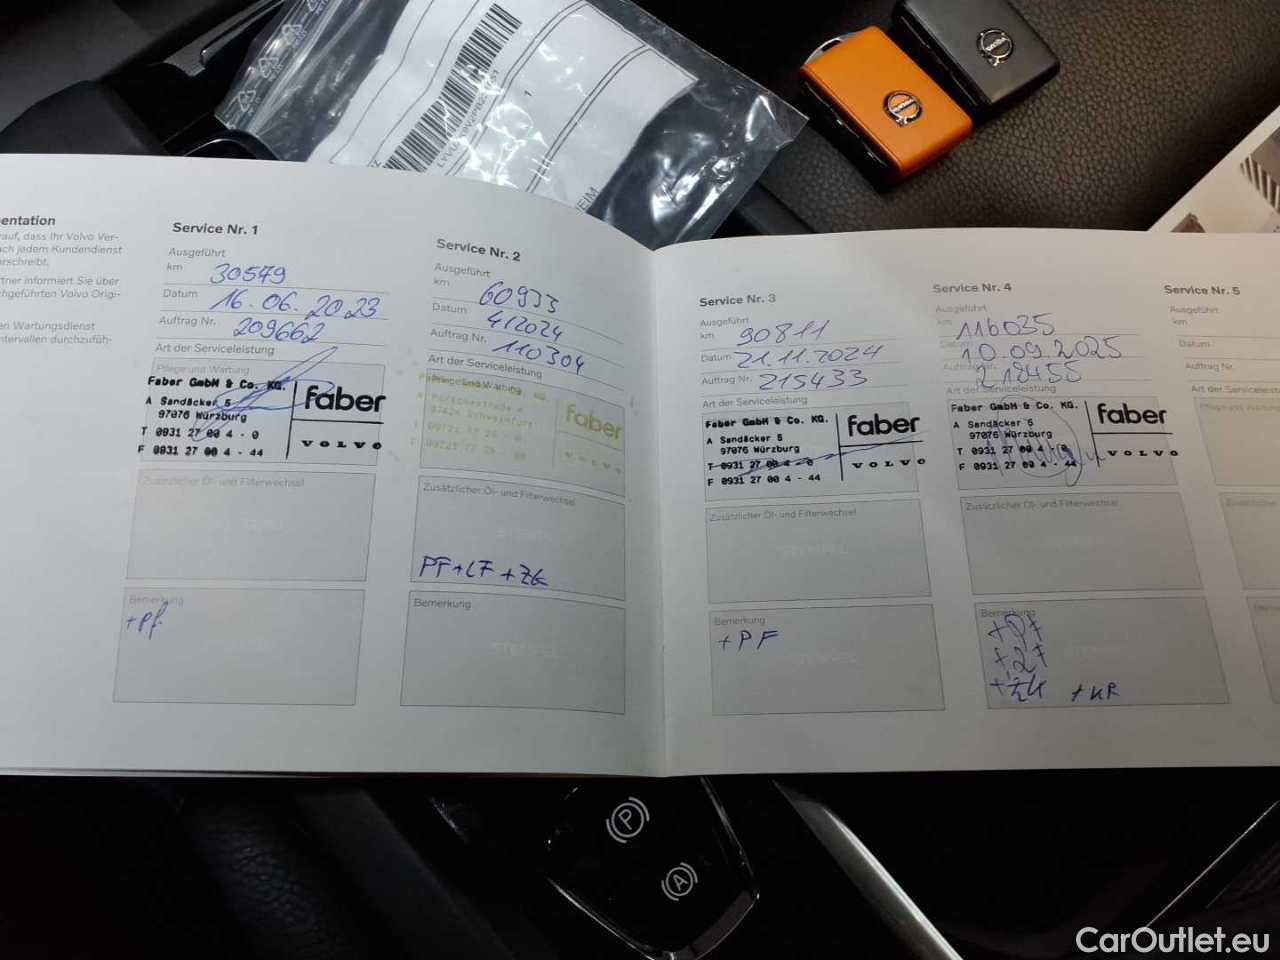 LYVU
1
Z
HEIM
VOLVO
VOLVO
entation
auf, dass Ihr Volvo Ver-
ach jedem Kundendienst
orschreibt.
rtner informiert Sie über
chgeführten Volvo Origi-
en Wartungsdienst
ntervallen durchzufüh-
Service Nr. 1
Ausgeführt
km 30579
Datum 16.06.2023
Auftrag Nr. 209662
Art der Serviceleistung
Pflege und Wartung
Faber GmbH & Co. KG.
A Sandäcker 5
97076 Würzburg
T 0931 27 00 4 - 0
F 0931 27 00 4 - 44
faber
VOLVO
Zusätzlicher Öl- und Filterwechsel
Bemerkung
+Pf.
Service Nr. 2
Ausgeführt
km 60933
Datum 412024
Auftrag Nr. 110304
Art der Serviceleistung
faber
VOLVO
Zusätzlicher Öl- und Filterwechsel
STEMPEL
PF+LF+ZK
Bemerkung
STEMPEL
Service Nr. 3
Ausgeführt
km 90811
Datum 21.11.2024
Auftrag Nr. 215433
Art der Serviceleistung
Faber GmbH & Co. KG.
A Sandäcker 5
97076 Würzburg
T 0931 27 00 4 - 0
F 0931 27 00 4 - 44
faber
VOLVO
Zusätzlicher Öl- und Filterwechsel
STEMPEL
Bemerkung
+PF
STEMPEL
Service Nr. 4
Ausgeführt
km 116035
Datum 10.09.2025
Auftrag Nr. 218455
Art der Serviceleistung
Faber GmbH & Co. KG.
A Sandäcker 5
97076 Würzburg
T 0931 27 00 4 - 0
F 0931 27 00 4 - 44
faber
VOLVO
Zusätzlicher Öl- und Filterwechsel
STEMPEL
Bemerkung
+ZK +KR
Service Nr. 5
Ausgeführt
km
Datum
Auftrag Nr.
Art der Serviceleistung
P
A
CarOutlet.eu